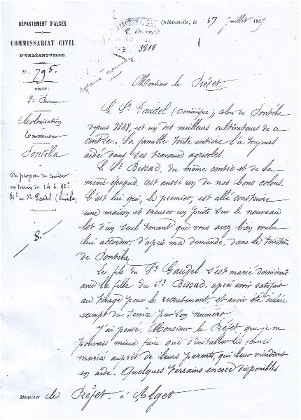 DÉPARTEMENT D'ALGER
COMMISSARIAT CIVIL
D'ORLÉANSVILLE
Orléansville, le 17 Juillet
N° 295
3818
Monsieur le Préfet
Colonisation
Pontéba
Le Sr Gaudel (Dominique), colon de Pontéba
depuis 1848, est un des meilleurs cultivateurs de ce
centre. Sa famille toute entière l'a toujours
aidé dans ses travaux agricoles.
Le Sr Bessad, du même centre et de la
même époque, est aussi un de nos bons colons.
C'est lui qui, le premier, est allé construire
une maison et creuser un puits sur le nouveau
lot d'un seul tenant que vous avez bien voulu
lui accorder d'après ma demande, dans le territoire
de Pontéba.
Le fils du Sr Gaudel s'est marié dernièrement
avec la fille du Sr Bessad, après avoir satisfait
au tirage pour le recrutement, et avoir été
exempt du service par son numéro.
J'ai pensé, Monsieur le Préfet, que je ne
pouvais mieux faire que d'installer les jeunes
mariés auprès de leurs parents, qui leur viendront
en aide. Quelques terrains encore disponibles
Monsieur le Préfet à Alger